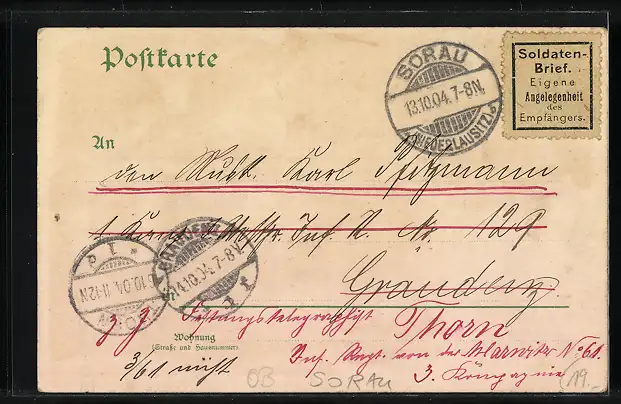 Postkarte
SORAU
13.10.04. 7-8N.
(NIEDERLAUSITZ)
Soldaten-
Brief.
Eigene
Angelegenheit
des
Empfängers.
An
den Musk. Karl Pfitzmann
Inf. R. No. 129
Graudenz
GRAUDENZ
14.10.04. 7-8V.
10.04. 11-12N
z. Z. Festungstelegraphist Thorn
Wohnung
(Straße und Hausnummer)
Inf. Regt. von der Marwitz No 61.
3/61
3. Kompagnie
OB SORAU
19.-